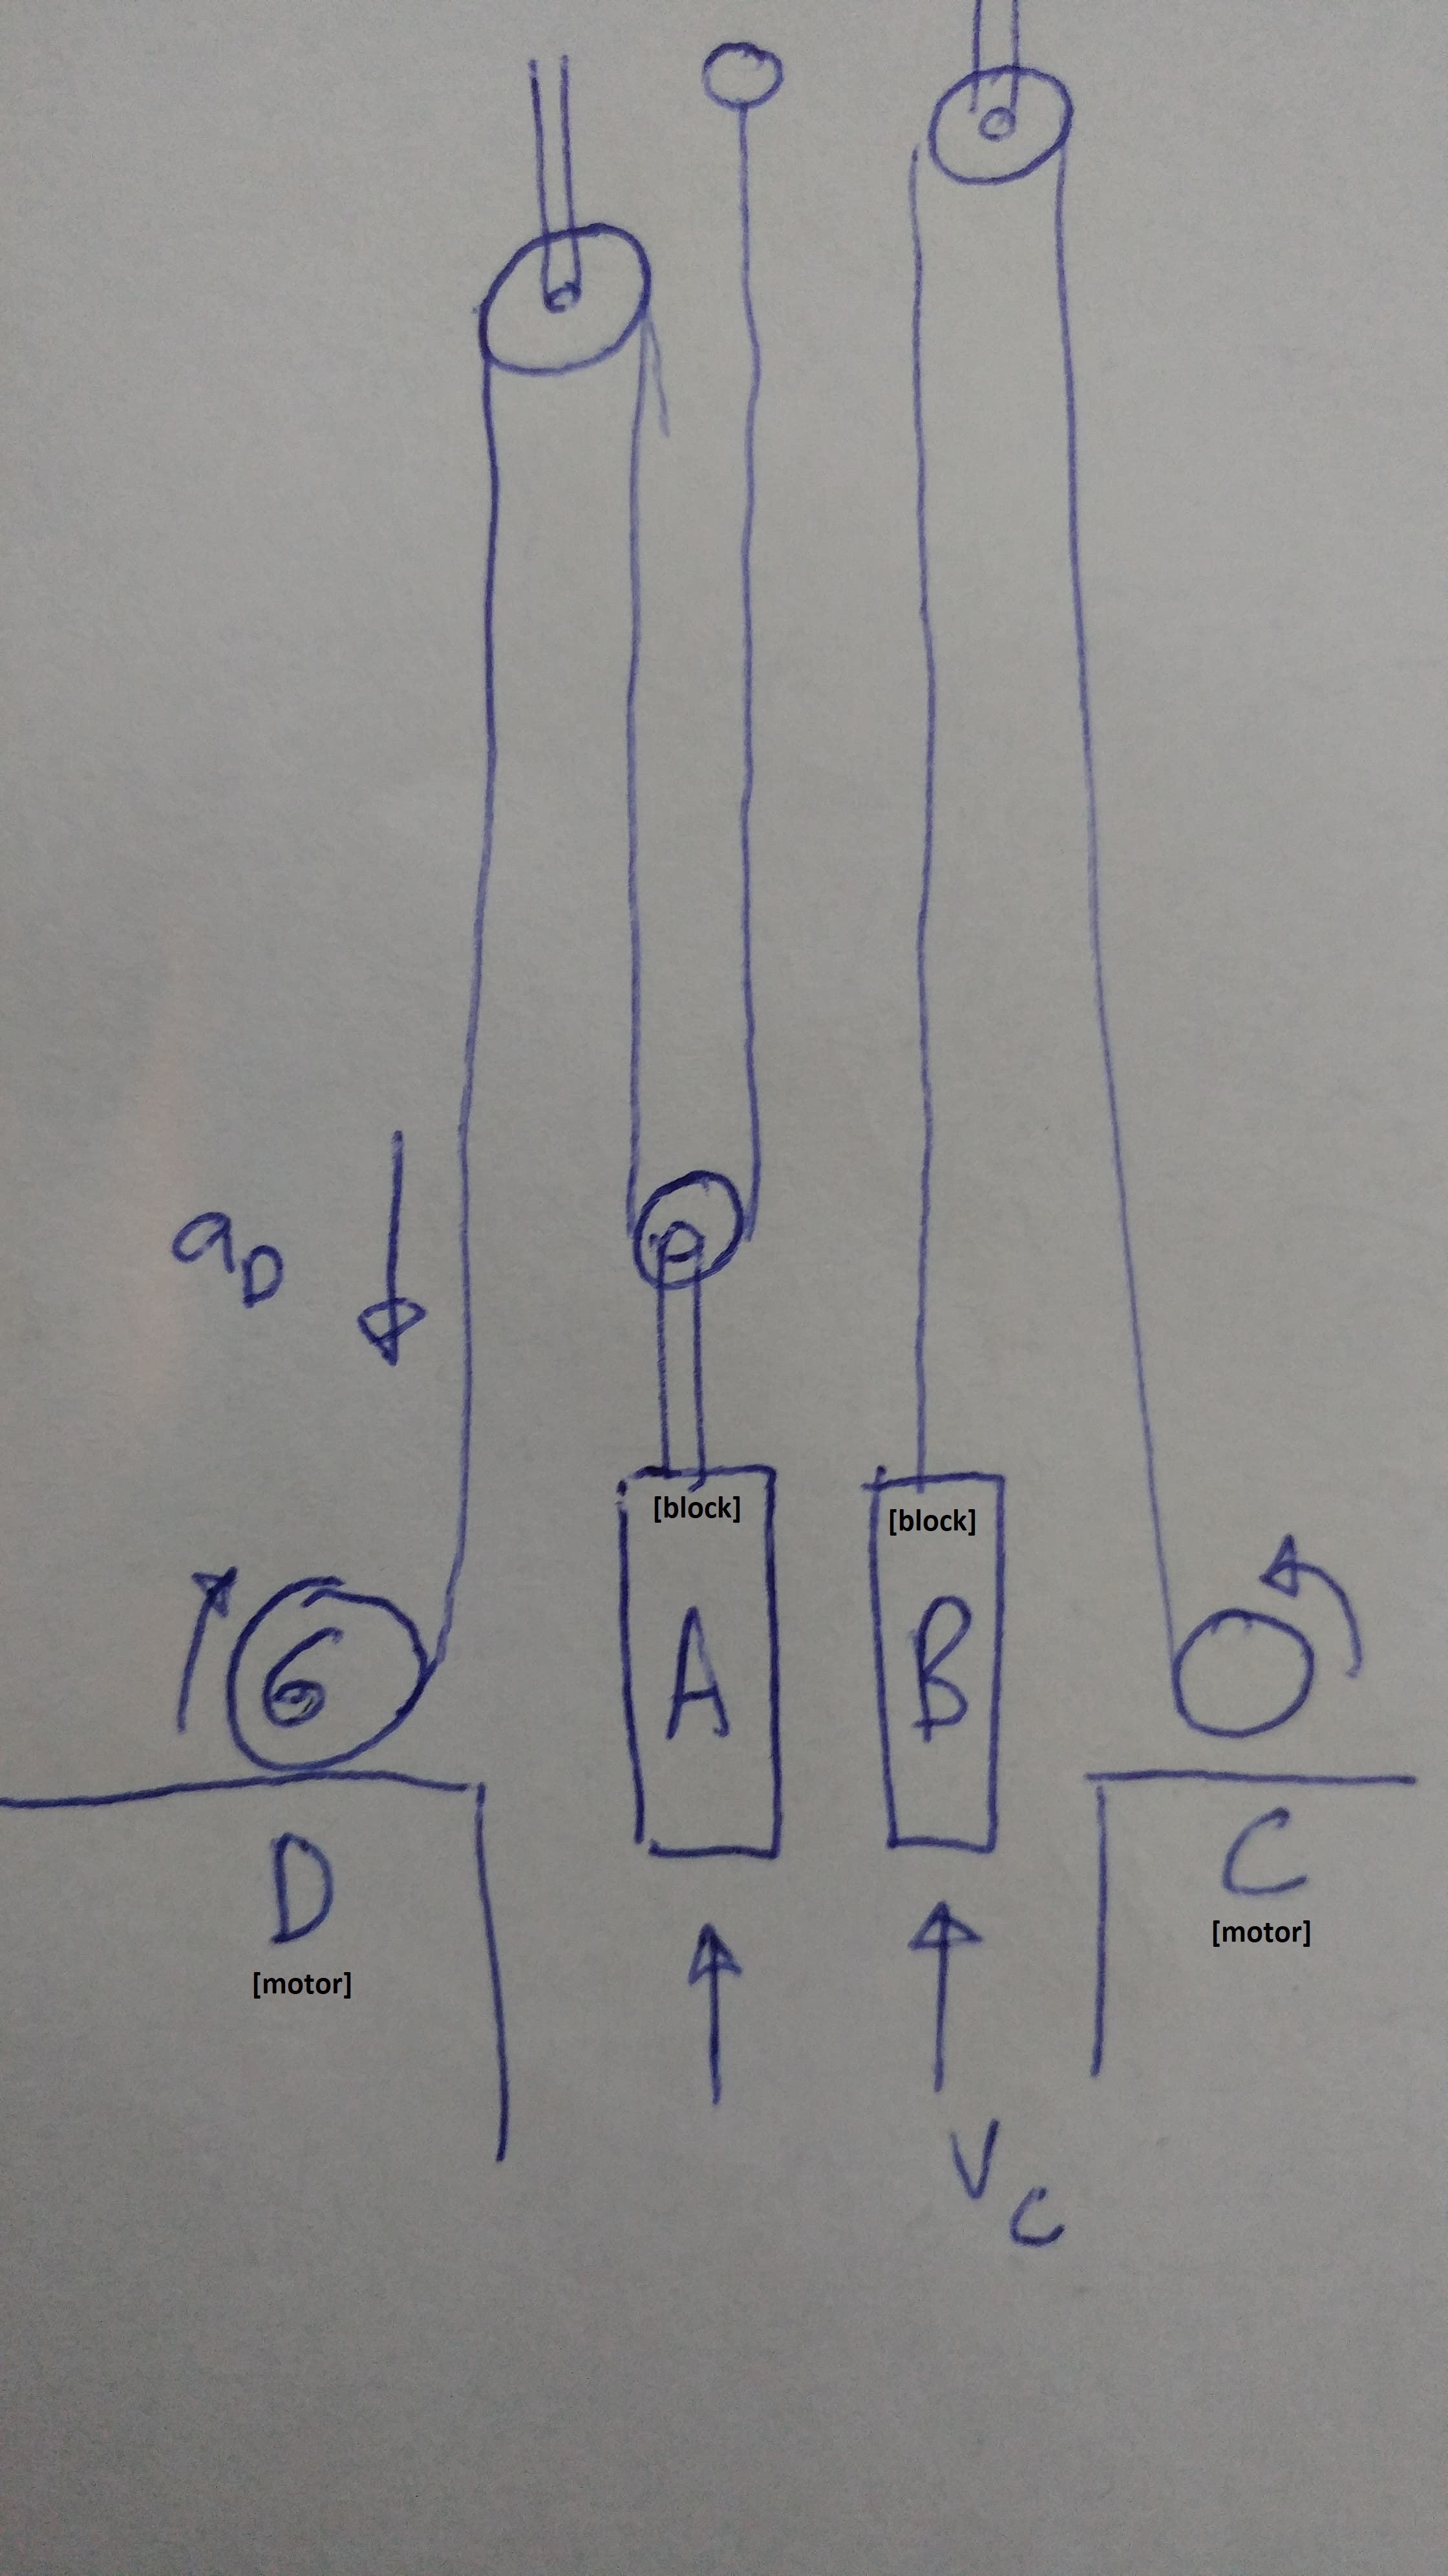 a_D
[block]
[block]
A
B
D
C
[motor]
[motor]
V_C